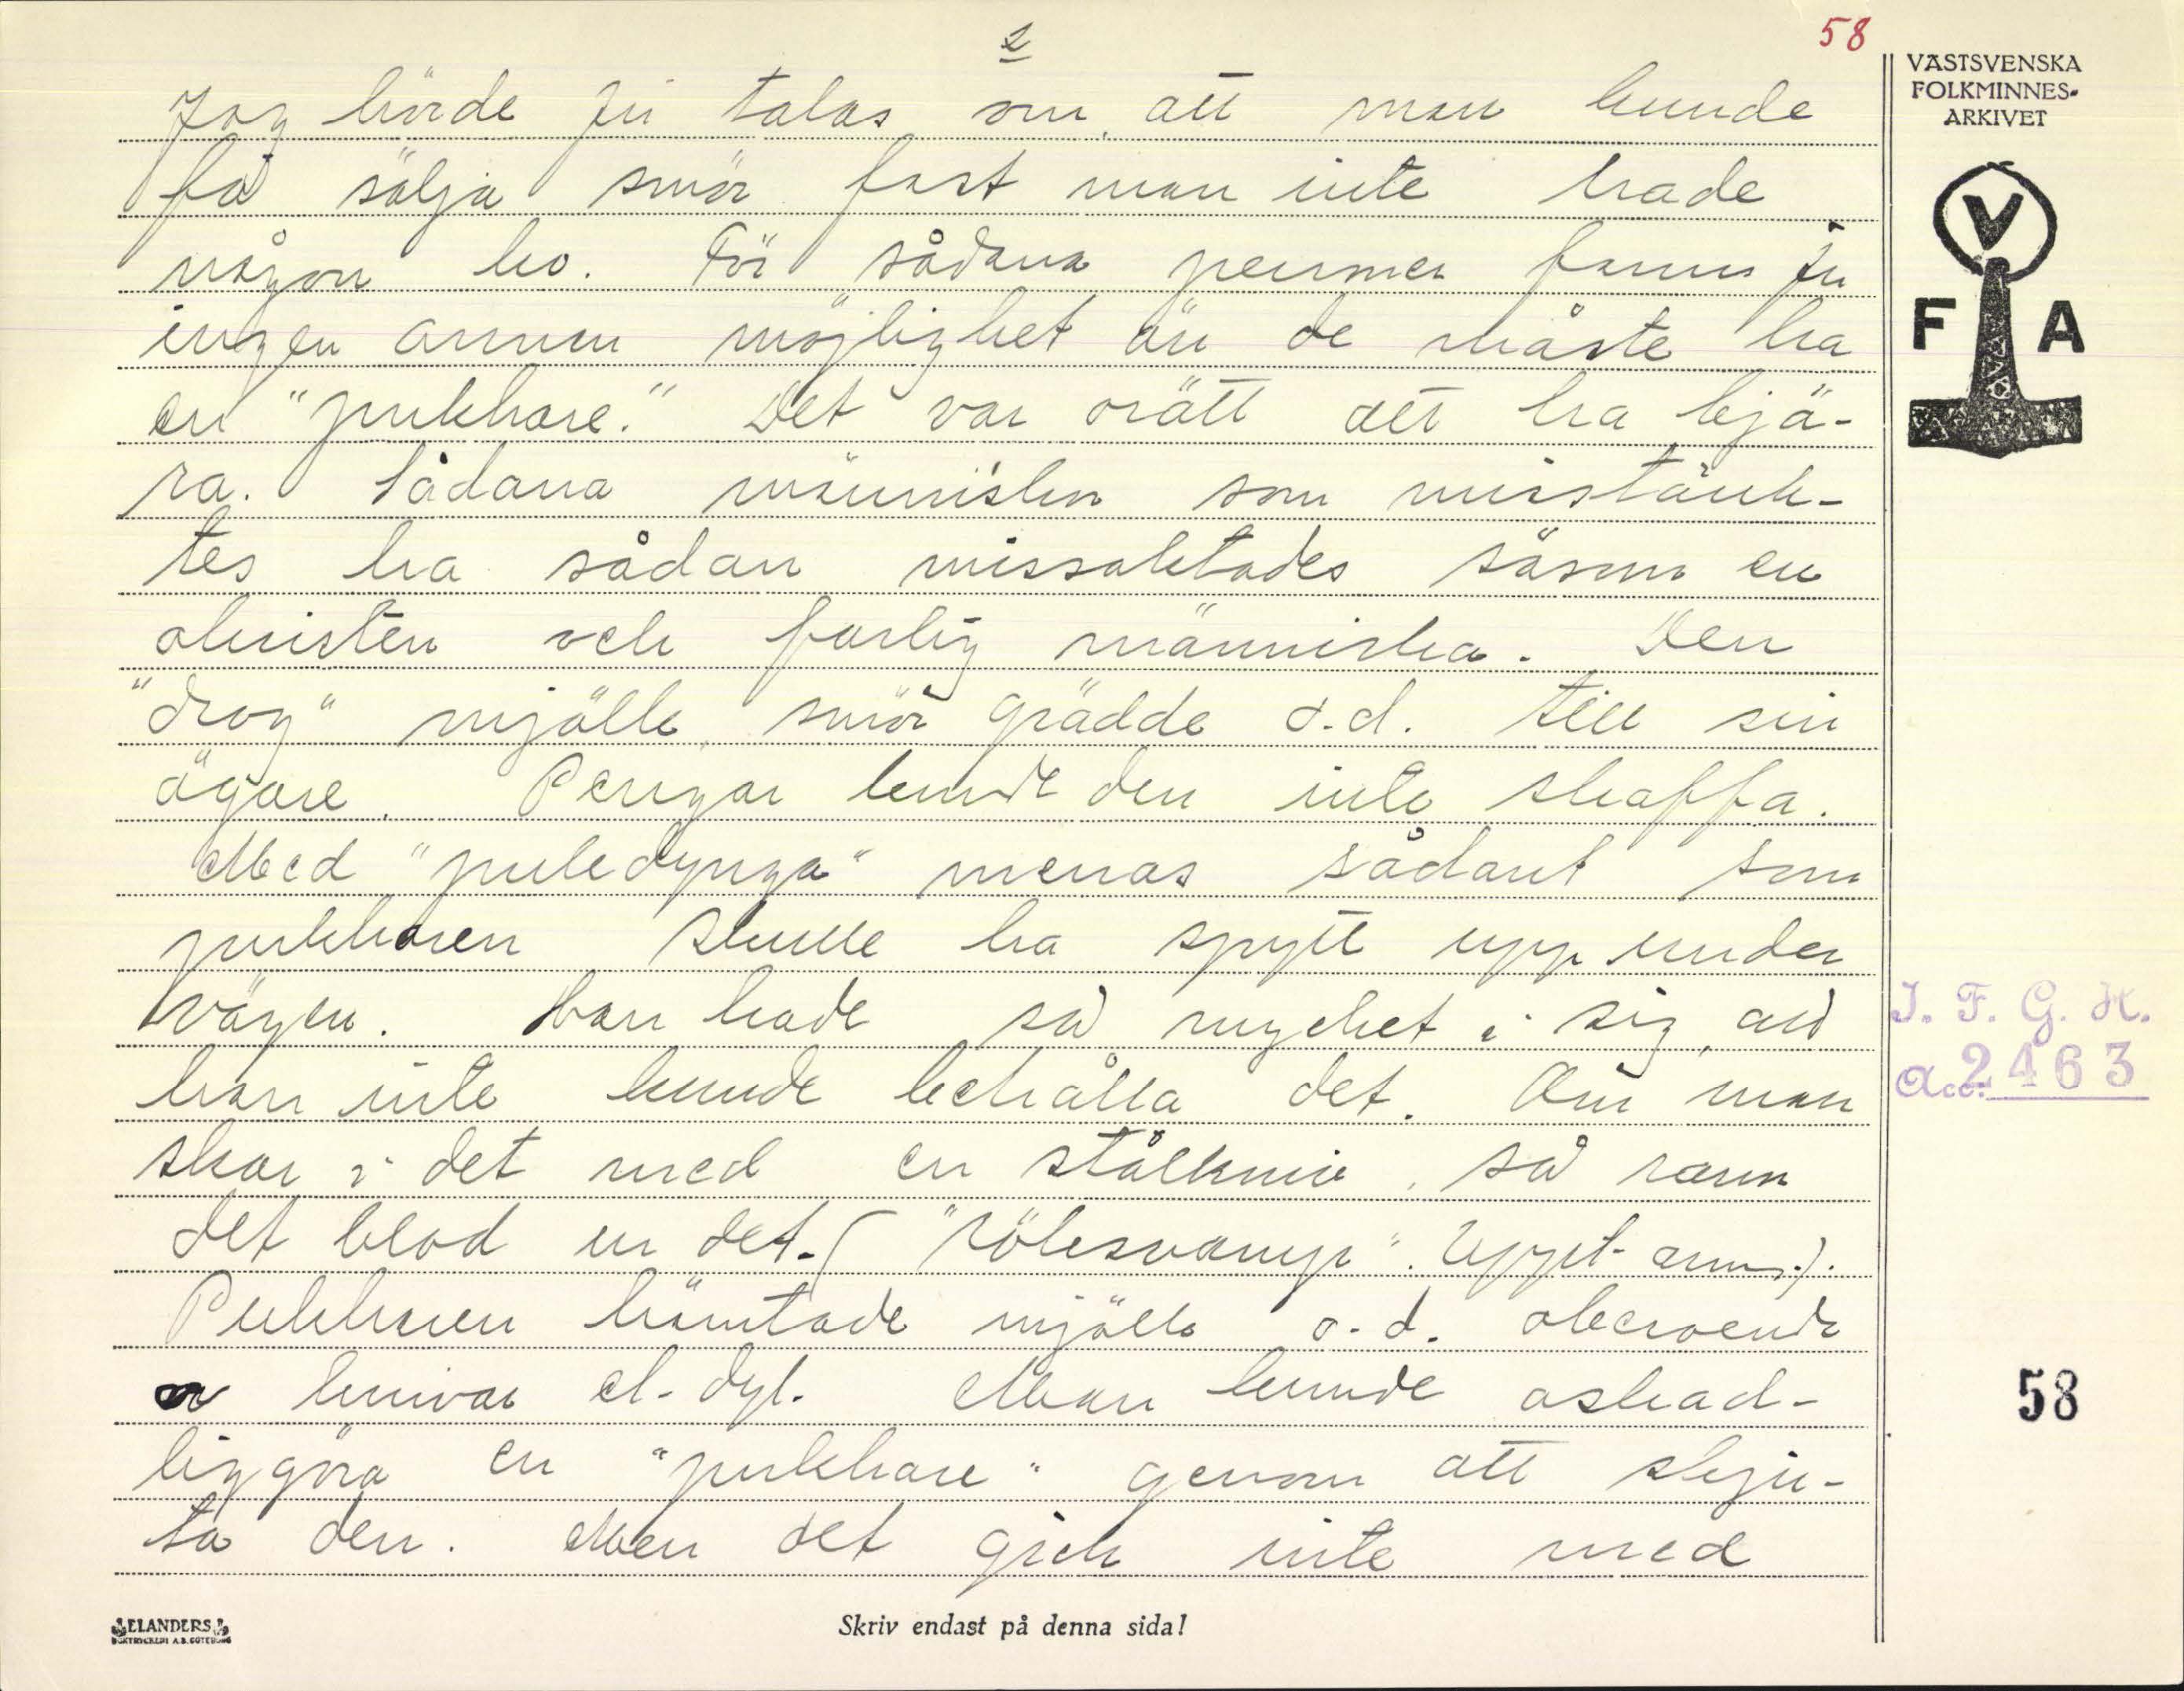 2
58
Jag hörde ju talas om, att man kunde
få sälja smör fast man inte hade
någon ko. För sådana personer fanns ju
ingen annan möjlighet än de måste ha
en "pukhare." Det var orätt att ha bjä-
ra. Sådana människor som misstänk-
tes ha sådan missaktades såsom en
okristen och farlig människa. Den
"drog" mjölk, smör grädde o.d. till sin
ägare. Pengar kunde den inte skaffa.
Med "pukedynga" menas sådant som
pukharen skulle ha spytt upp under
vägen. Han hade så mycket i sig, att
han inte kunde behålla det. Om man
skar i det med en stålkniv, så rann
det blod ur det. ("Rölesvamp". Uppt. anm.).
Pukharen hämtade mjölk o.d. oberoende
av knivar el. dyl. Man kunde oskad-
liggöra en "pukhare" genom att skju-
ta den. Men det gick inte med
VÄSTSVENSKA
FOLKMINNES-
ARKIVET
V
F A
I. F. G. H.
Acc. 2463
58
ELANDERS
BOKTRYCKERI A.B. GÖTEBORG
Skriv endast på denna sida!